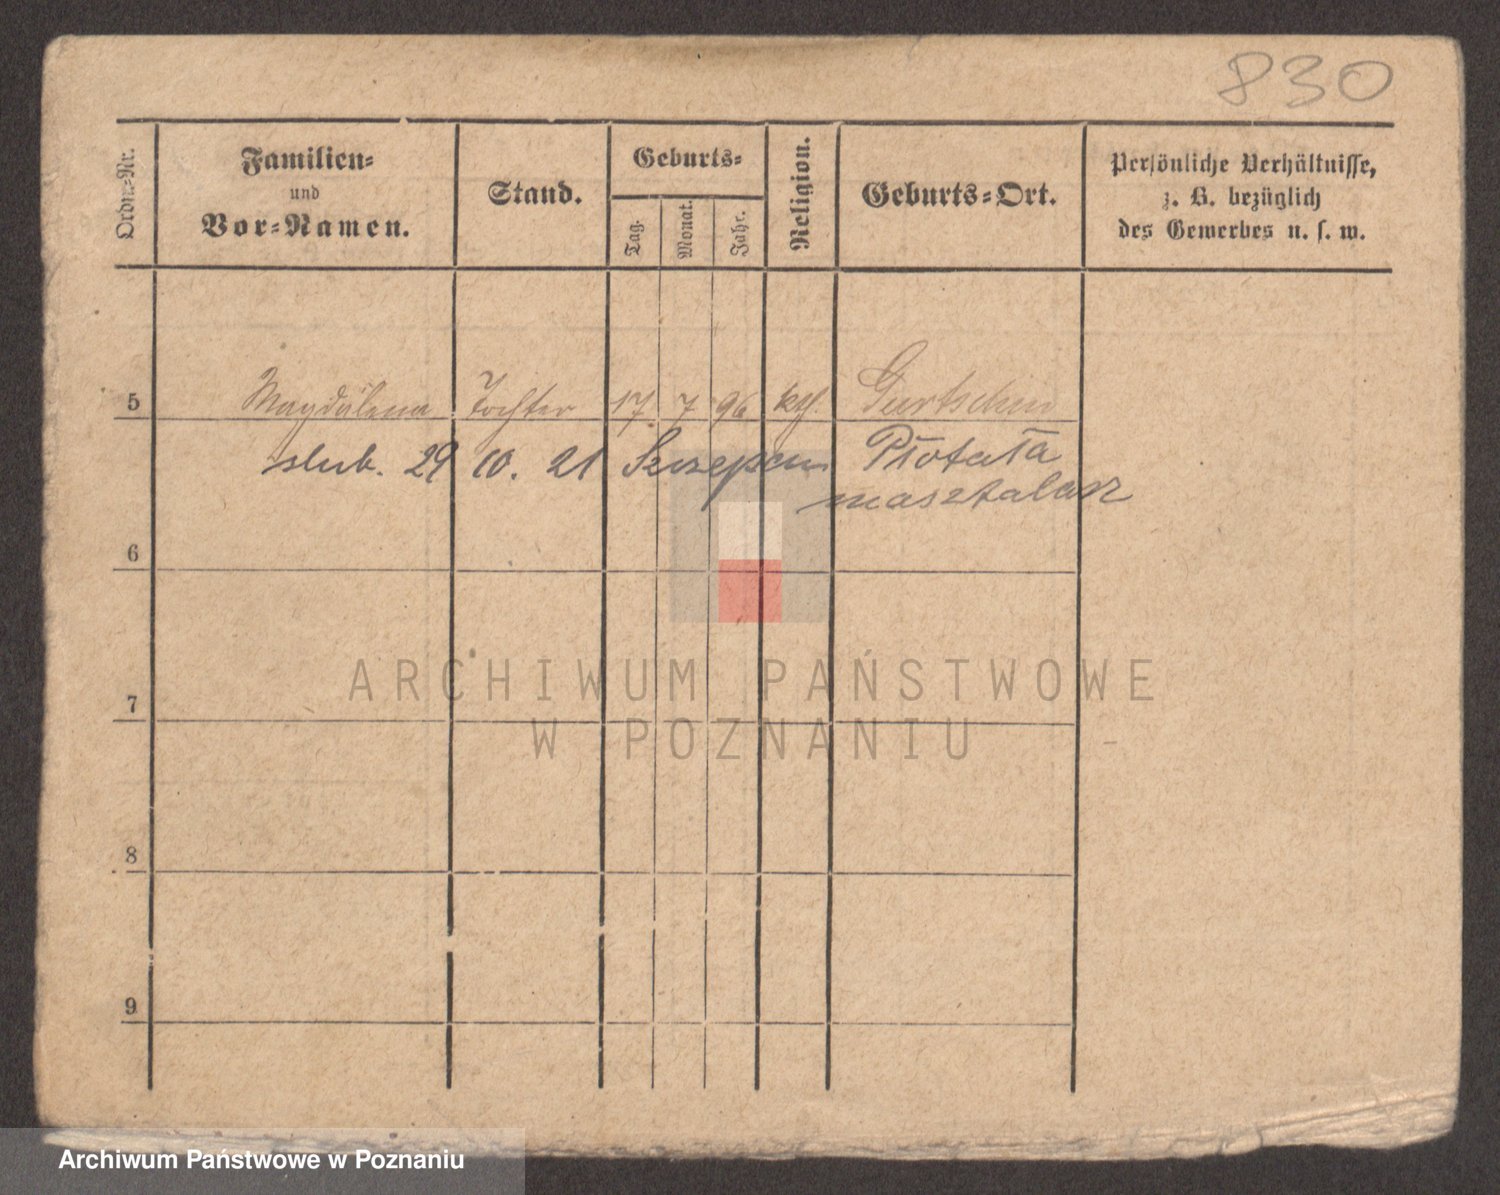 830
Ordn.-Nr.
Familien-
und
Vor-Namen.
Stand.
Geburts-
Tag.
Monat.
Jahr.
Religion.
Geburts-Ort.
Persönliche Verhältnisse,
z. B. bezüglich
des Gewerbes u. s. w.
5 Magdalena Tochter 17. 7 96 kth. Gurtschin
slub. 29 10. 21 Szczepan Płotała
masztalarz
6
7
8
9
ARCHIWUM PAŃSTWOWE
W POZNANIU
Archiwum Państwowe w Poznaniu